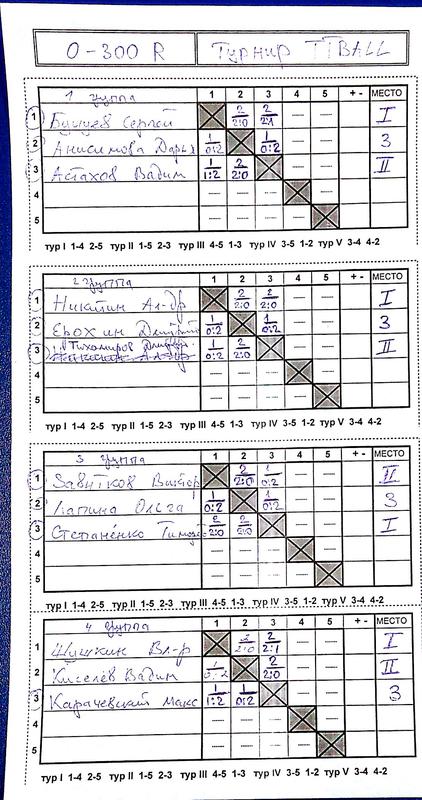 0-300 R Турнир TTBALL
1 группа 1 2 3 4 5 + - МЕСТО
1 Сергей 2 2:0 2 2:1 — — I
2 Анисимова Дарья 1 0:2 1 0:2 — — 3
3 Астахов Вадим 1 1:2 2 2:0 — — II
4 — — — —
5 — — — —
тур I 1-4 2-5 тур II 1-5 2-3 тур III 4-5 1-3 тур IV 3-5 1-2 тур V 3-4 4-2
2 группа 1 2 3 4 5 + - МЕСТО
1 Никитин Ал-др 2 2:0 2 2:0 — — I
2 Ерохин Дмитрий 1 0:2 1 0:2 — — 3
3 Тихомиров Дмитр. 1 0:2 2 2:0 — — II
4 — — — —
5 — — — —
тур I 1-4 2-5 тур II 1-5 2-3 тур III 4-5 1-3 тур IV 3-5 1-2 тур V 3-4 4-2
3 группа 1 2 3 4 5 + - МЕСТО
1 Виктор 2 2:0 1 0:2 — — II
2 Лапина Ольга 1 0:2 1 0:2 — — 3
3 Степаненко Тимофей 2 2:0 2 2:0 — — I
4 — — — —
5 — — — —
тур I 1-4 2-5 тур II 1-5 2-3 тур III 4-5 1-3 тур IV 3-5 1-2 тур V 3-4 4-2
4 группа 1 2 3 4 5 + - МЕСТО
1 Вл-р 2 2:0 2 2:1 — — I
2 Киселёв Вадим 1 0:2 2 2:0 — — II
3 Карачевский Макс 1 1:2 1 0:2 — — 3
4 — — — —
5 — — — —
тур I 1-4 2-5 тур II 1-5 2-3 тур III 4-5 1-3 тур IV 3-5 1-2 тур V 3-4 4-2